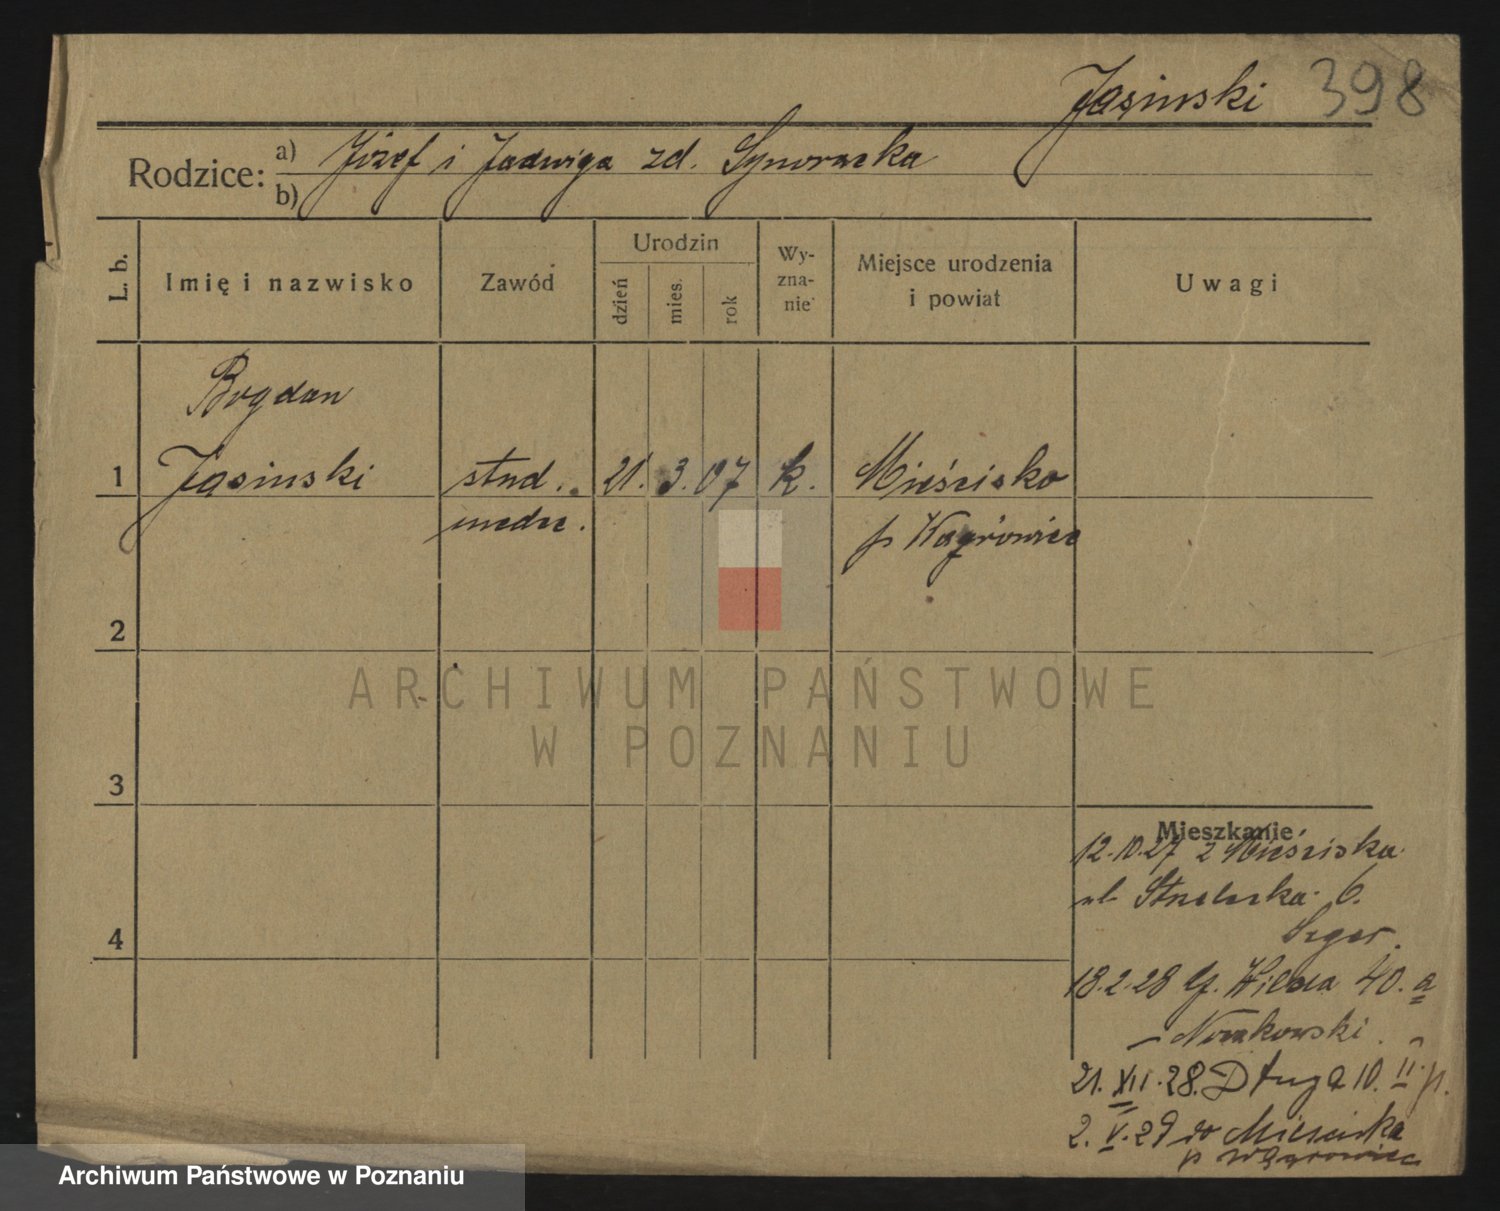 Jasinski 398
Rodzice: a) Józef i Jadwiga zd. Synoracka
b)
L. b. Imię i nazwisko Zawód Urodzin dzień mies. rok Wy-zna-nie Miejsce urodzenia i powiat Uwagi
Bogdan
1 Jasinski stud. 21. 3. 07 k. Mieścisko
medic. p Wągrówiec
2
ARCHIWUM PAŃSTWOWE
W POZNANIU
3
Mieszkanie
12.10.27 z Mieściska
ul. Strzelecka 6.
18.2.28 G. Wilda 40. a
Nowakowski.
21. XII. 28. Długa 10. II. p.
2. V. 29 do Mieściska
p Wągrowiec
4
Archiwum Państwowe w Poznaniu